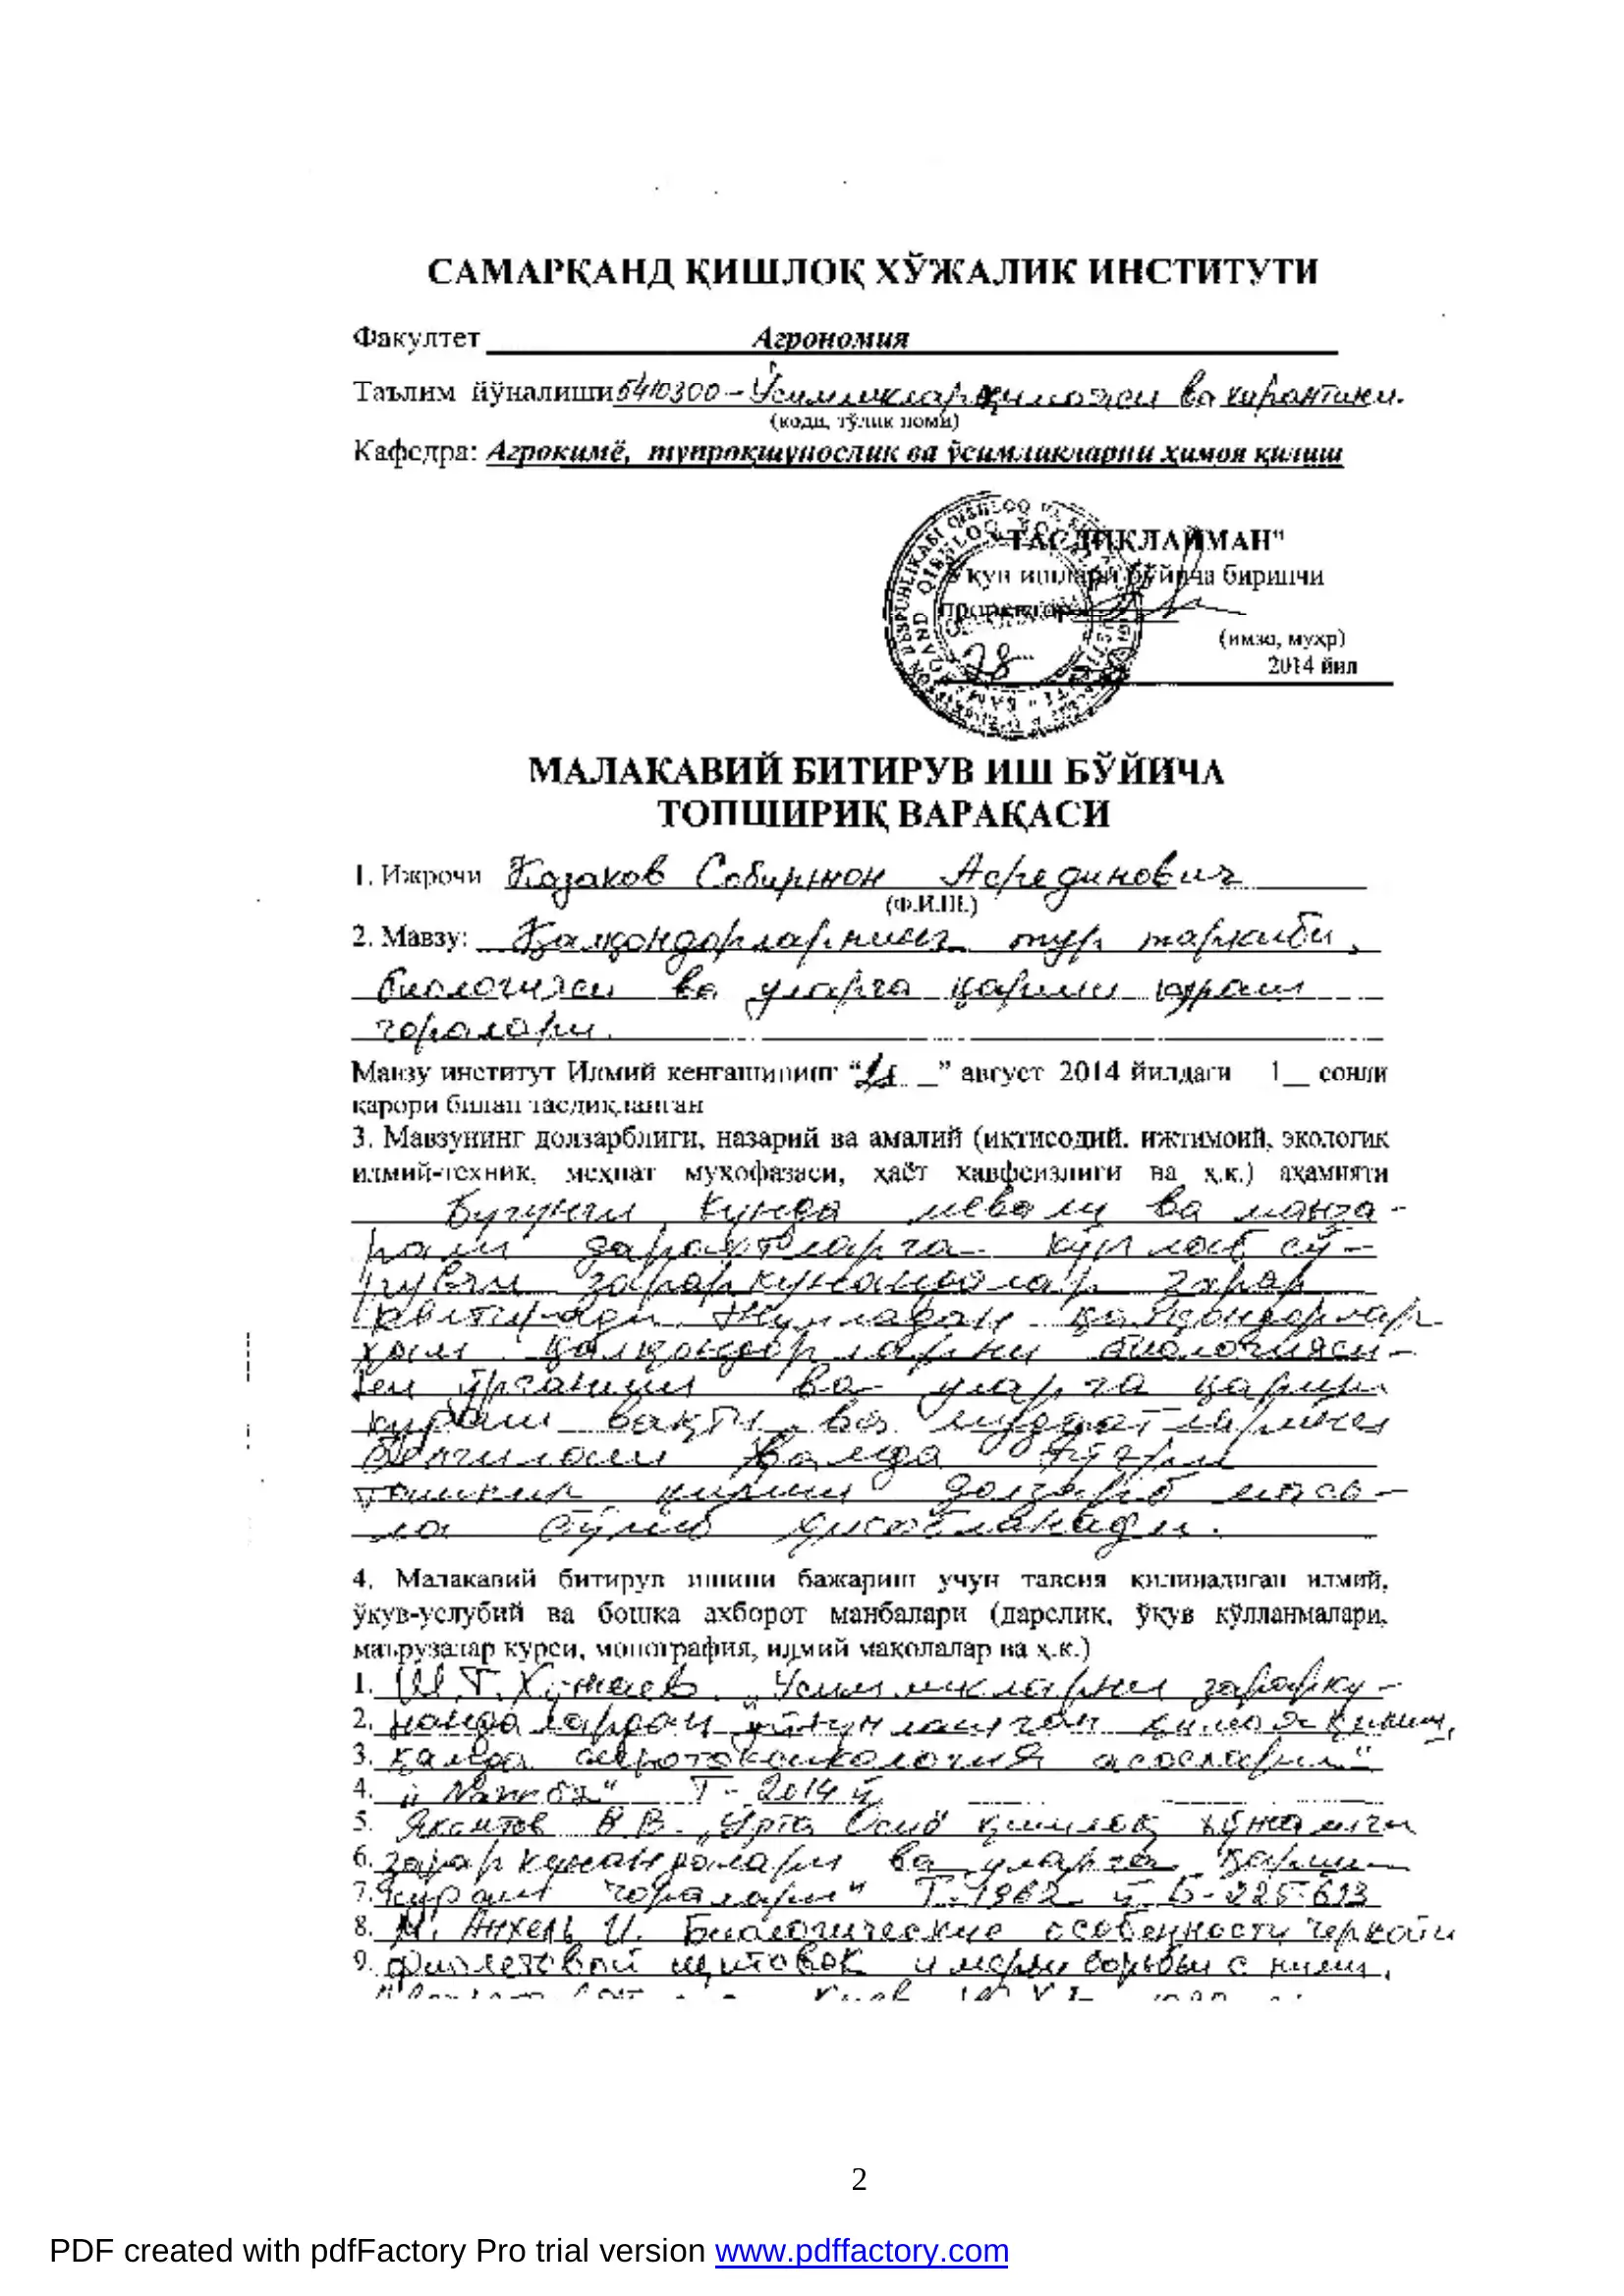 САМАРҚАНД ҚИШЛОҚ ХЎЖАЛИК ИНСТИТУТИ
Факултет Агрономия
Таълим йўналиши 5410300 – Ўсимликлар ҳимояси ва карантини.
(коди, тўлиқ номи)
Кафедра: Агрокимё, тупроқшунослик ва ўсимликларни ҳимоя қилиш
"ТАСДИҚЛАЙМАН"
Ўқув ишлари бўйича биринчи
проректор
(имзо, муҳр)
28 2014 йил
МАЛАКАВИЙ БИТИРУВ ИШ БЎЙИЧА
ТОПШИРИҚ ВАРАҚАСИ
1. Ижрочи Казаков Собиржон Асрединович
(Ф.И.Ш.)
2. Мавзу: Қалқондорларнинг тур таркиби,
биологияси ва уларга қарши кураш
чоралари.
Мавзу институт Илмий кенгашининг “ ” август 2014 йилдаги 1 сонли
қарори билан тасдиқланган
3. Мавзунинг долзарблиги, назарий ва амалий (иқтисодий, ижтимоий, экологик
илмий-техник, меҳнат муҳофазаси, ҳаёт хавфсизлиги ва ҳ.к.) аҳамияти
Бугунги кунда мевали ва манза-
рали дарахтларга кўплаб сў-
рувчи зараркунандалар зарар
Жумладан қалқондорлар
ҳам қалқондорларни биологияси-
ни ўрганиш ва уларга қарши
кураш вақти ва муддатларини
белгилаш ҳамда тўғри
ташкил қилиш долзарб маса-
ла бўлиб ҳисобланади.
4. Малакавий битирув ишини бажариш учун тавсия қилинадиган илмий,
ўқув-услубий ва бошка ахборот манбалари (дарслик, ўқув қўлланмалари,
маърузалар курси, монография, илмий мақолалар ва ҳ.к.)
1. Ш.Т. Хўжаев „Ўсимликларни зарарку-
2. нандалардан уйғунлашган ҳимоя қилиш,
3. ҳамда агротоксикология асослари“
4. „Navroʻz“ Т - 2014 й
5. В.В. „Ўрта Осиё қишлоқ хўжалиги
6. зараркунандалари ва уларга қарши
7. кураш чоралари“ Т-1962 й Б-225-613
8. М. Анхель И. Биологические особенности
9. фиолетовой щитовок и меры борьбы с ними.
2
PDF created with pdfFactory Pro trial version www.pdffactory.com